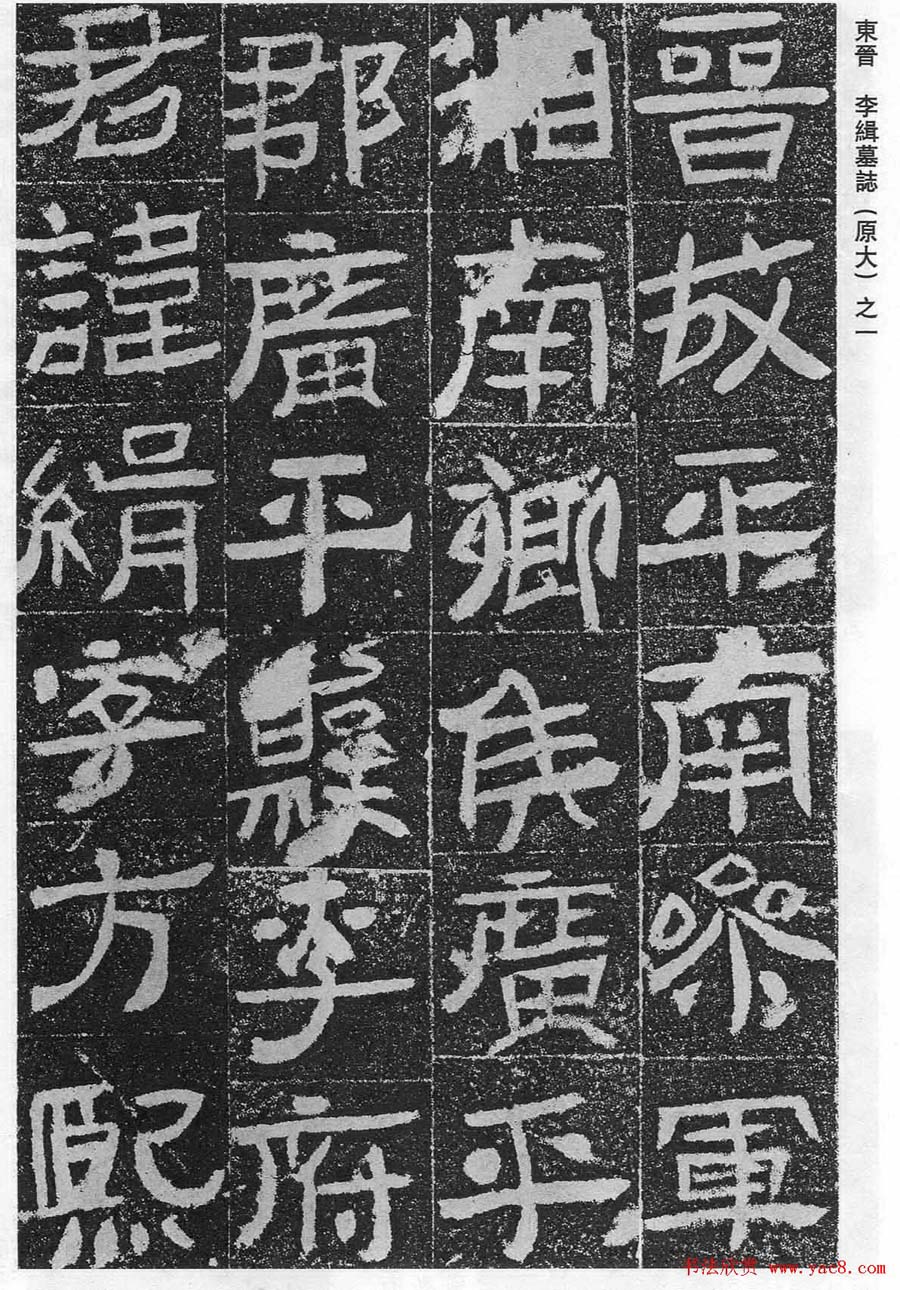 東晉 李緝墓誌（原大）之一
晉故平南參軍
湘南鄉侯廣平
郡廣平縣李府
君諱緝字方熙
书法欣赏 www.yac8.com